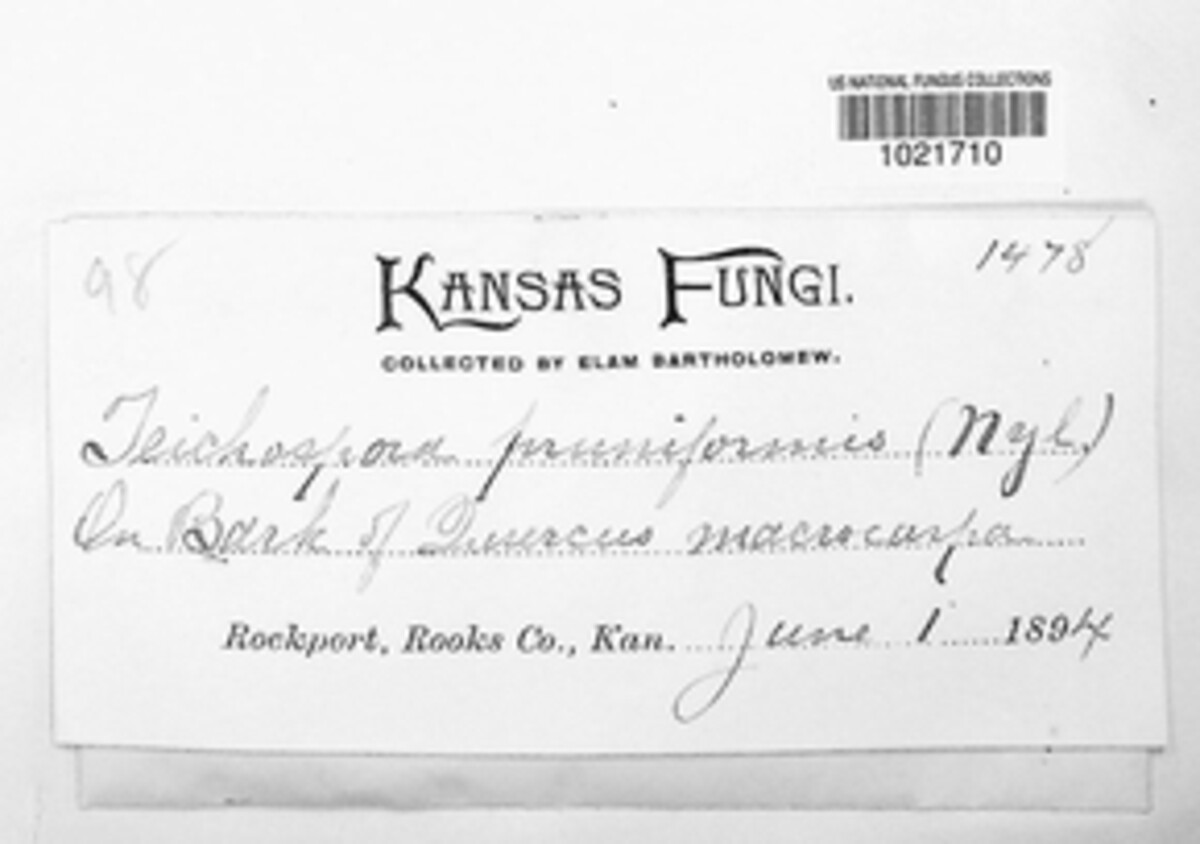 US NATIONAL FUNGUS COLLECTIONS
1021710
98
1478
KANSAS FUNGI.
COLLECTED BY ELAM BARTHOLOMEW.
Teichospora pruniformis (Nyl.)
On Bark of Quercus macrocarpa
Rockport, Rooks Co., Kan. June 1 1894